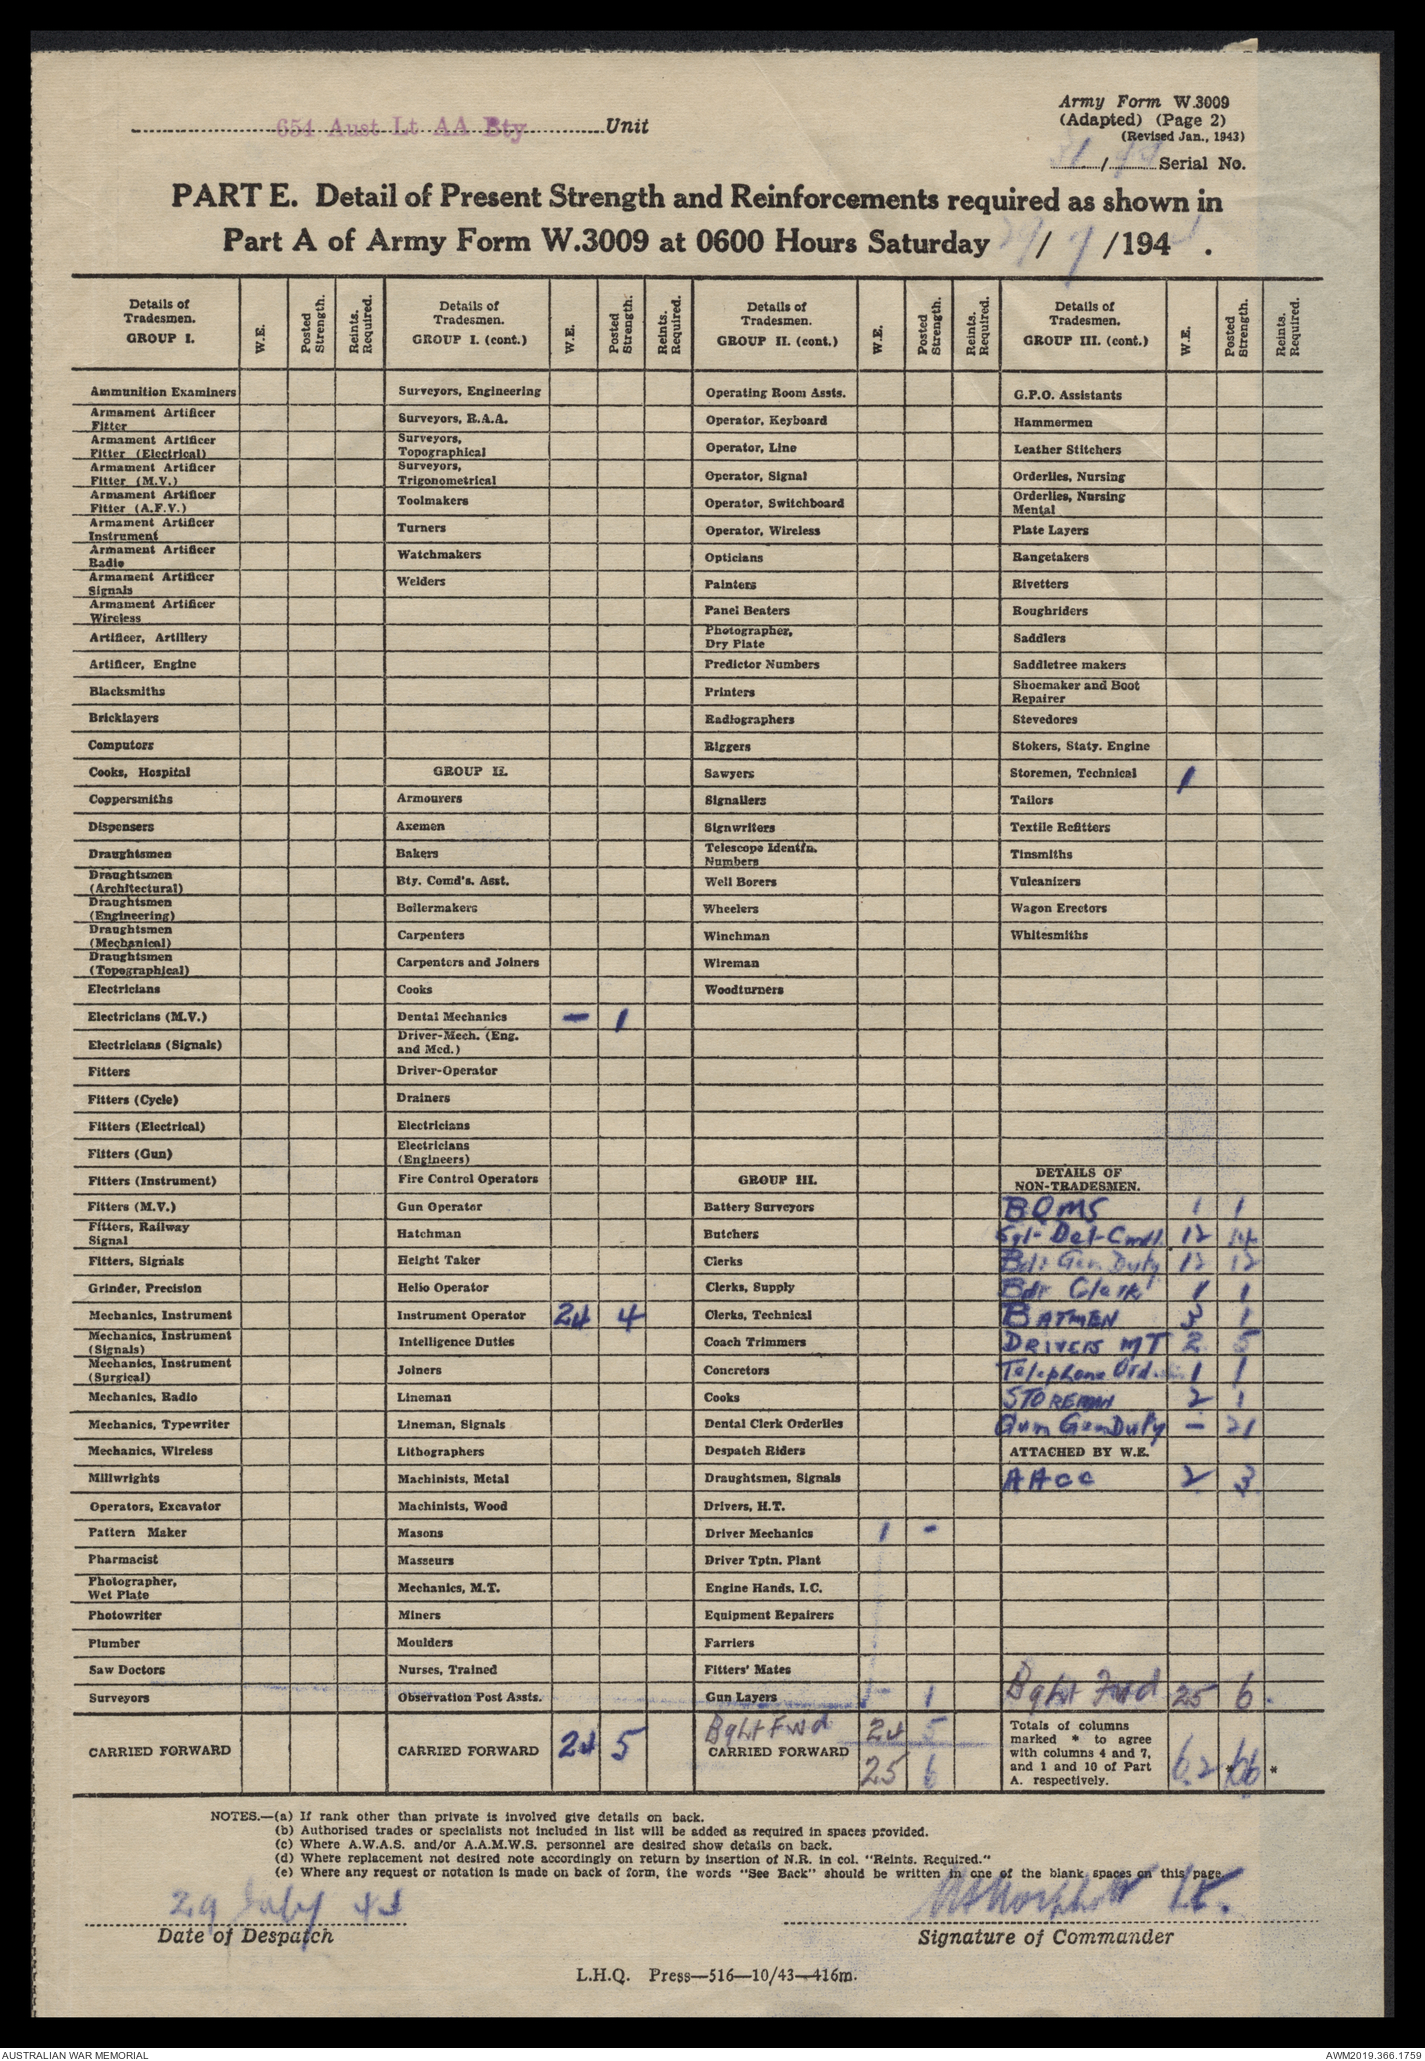 654 Aust Lt AA Bty Unit
Army Form W.3009
(Adapted) (Page 2)
(Revised Jan., 1943)
31/44 Serial No.
PART E. Detail of Present Strength and Reinforcements required as shown in
Part A of Army Form W.3009 at 0600 Hours Saturday 29/7/194 .
Details of Tradesmen. GROUP I. W.E. Posted Strength. Reints. Required.
Ammunition Examiners
Armament Artificer Fitter
Armament Artificer Fitter (Electrical)
Armament Artificer Fitter (M.V.)
Armament Artificer Fitter (A.F.V.)
Armament Artificer Instrument
Armament Artificer Radio
Armament Artificer Signals
Armament Artificer Wireless
Artificer, Artillery
Artificer, Engine
Blacksmiths
Bricklayers
Computors
Cooks, Hospital
Coppersmiths
Dispensers
Draughtsmen
Draughtsmen (Architectural)
Draughtsmen (Engineering)
Draughtsmen (Mechanical)
Draughtsmen (Topographical)
Electricians
Electricians (M.V.)
Electricians (Signals)
Fitters
Fitters (Cycle)
Fitters (Electrical)
Fitters (Gun)
Fitters (Instrument)
Fitters (M.V.)
Fitters, Railway Signal
Fitters, Signals
Grinder, Precision
Mechanics, Instrument
Mechanics, Instrument (Signals)
Mechanics, Instrument (Surgical)
Mechanics, Radio
Mechanics, Typewriter
Mechanics, Wireless
Millwrights
Operators, Excavator
Pattern Maker
Pharmacist
Photographer, Wet Plate
Photowriter
Plumber
Saw Doctors
Surveyors
CARRIED FORWARD
Details of Tradesmen. GROUP I. (cont.) W.E. Posted Strength. Reints. Required.
Surveyors, Engineering
Surveyors, R.A.A.
Surveyors, Topographical
Surveyors, Trigonometrical
Toolmakers
Turners
Watchmakers
Welders
GROUP II.
Armourers
Axemen
Bakers
Bty. Comd's. Asst.
Boilermakers
Carpenters
Carpenters and Joiners
Cooks
Dental Mechanics – 1
Driver-Mech. (Eng. and Med.)
Driver-Operator
Drainers
Electricians
Electricians (Engineers)
Fire Control Operators
Gun Operator
Hatchman
Height Taker
Helio Operator
Instrument Operator 24 4
Intelligence Duties
Joiners
Lineman
Lineman, Signals
Lithographers
Machinists, Metal
Machinists, Wood
Masons
Masseurs
Mechanics, M.T.
Miners
Moulders
Nurses, Trained
Observation Post Assts.
CARRIED FORWARD 24 5
Details of Tradesmen. GROUP II. (cont.) W.E. Posted Strength. Reints. Required.
Operating Room Assts.
Operator, Keyboard
Operator, Line
Operator, Signal
Operator, Switchboard
Operator, Wireless
Opticians
Painters
Panel Beaters
Photographer, Dry Plate
Predictor Numbers
Printers
Radiographers
Riggers
Sawyers
Signallers
Signwriters
Telescope Identfn. Numbers
Well Borers
Wheelers
Winchman
Wireman
Woodturners
GROUP III.
Battery Surveyors
Butchers
Clerks
Clerks, Supply
Clerks, Technical
Coach Trimmers
Concretors
Cooks
Dental Clerk Orderlies
Despatch Riders
Draughtsmen, Signals
Drivers, H.T.
Driver Mechanics 1 -
Driver Tptn. Plant
Engine Hands, I.C.
Equipment Repairers
Farriers
Fitters' Mates
Gun Layers – 1
Bght Fwd 24 5
CARRIED FORWARD 25 6
Details of Tradesmen. GROUP III. (cont.) W.E. Posted Strength. Reints. Required.
G.P.O. Assistants
Hammermen
Leather Stitchers
Orderlies, Nursing
Orderlies, Nursing Mental
Plate Layers
Rangetakers
Rivetters
Roughriders
Saddlers
Saddletree makers
Shoemaker and Boot Repairer
Stevedores
Stokers, Staty. Engine
Storemen, Technical 1
Tailors
Textile Refitters
Tinsmiths
Vulcanizers
Wagon Erectors
Whitesmiths
DETAILS OF NON-TRADESMEN.
BQMS 1 1
Sgt- Det-Cmd. 12 14
Bdr Gen Duty 12 12
Bdr Clerk 1 1
BATMEN 3 1
DRIVERS MT 2 5
Telephone Ord. 1 1
STOREMAN 2 1
Gun Gen Duty – 21
ATTACHED BY W.E.
AACC 2 3
Bght Fwd 25 6
Totals of columns marked * to agree with columns 4 and 7, and 1 and 10 of Part A. respectively. 62 *66 *
NOTES.—(a) If rank other than private is involved give details on back.
(b) Authorised trades or specialists not included in list will be added as required in spaces provided.
(c) Where A.W.A.S. and/or A.A.M.W.S. personnel are desired show details on back.
(d) Where replacement not desired note accordingly on return by insertion of N.R. in col. "Reints. Required."
(e) Where any request or notation is made on back of form, the words "See Back" should be written in one of the blank spaces on this page.
29 July 44
Lt.
Date of Despatch
Signature of Commander
L.H.Q. Press—516—10/43—416m.
AUSTRALIAN WAR MEMORIAL
AWM2019.366.1759